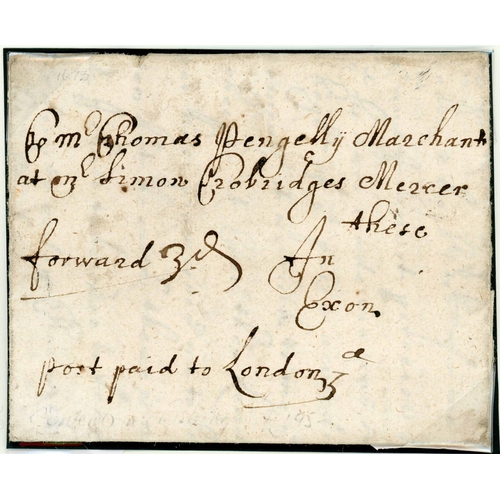 To mr Thomas Pengelly Marchant
at mr Simon Crobridges Mercer
these
forward 3d In
Exon
post paid to London 3d